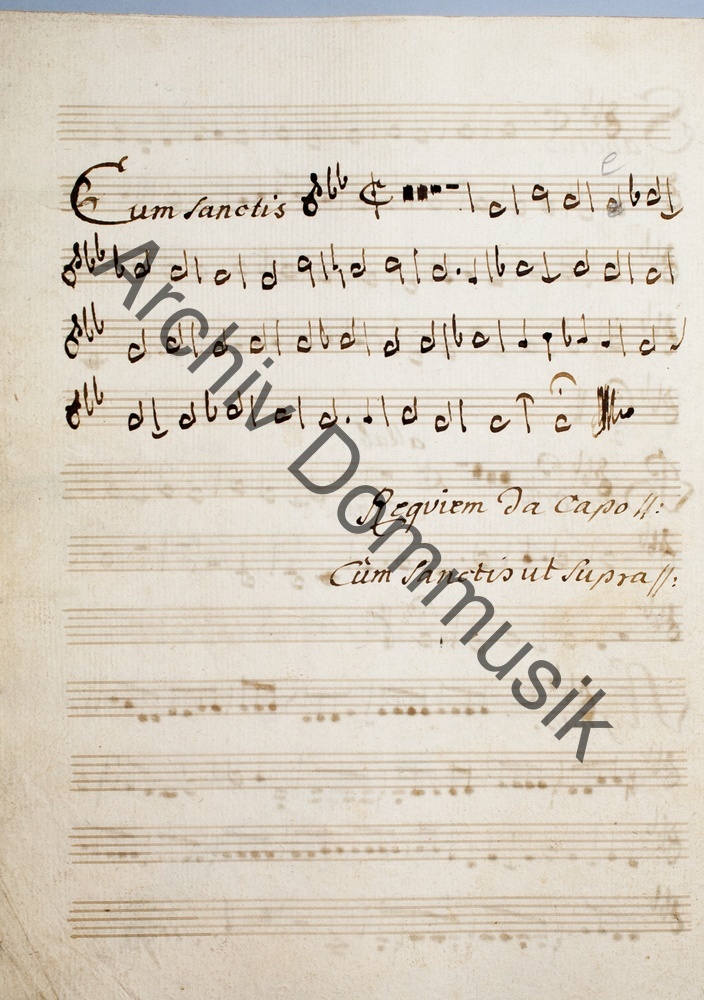 e
Cum Sanctis
Requiem Da Capo //:
Cum Sanctis ut Supra //:
Archiv Dommusik